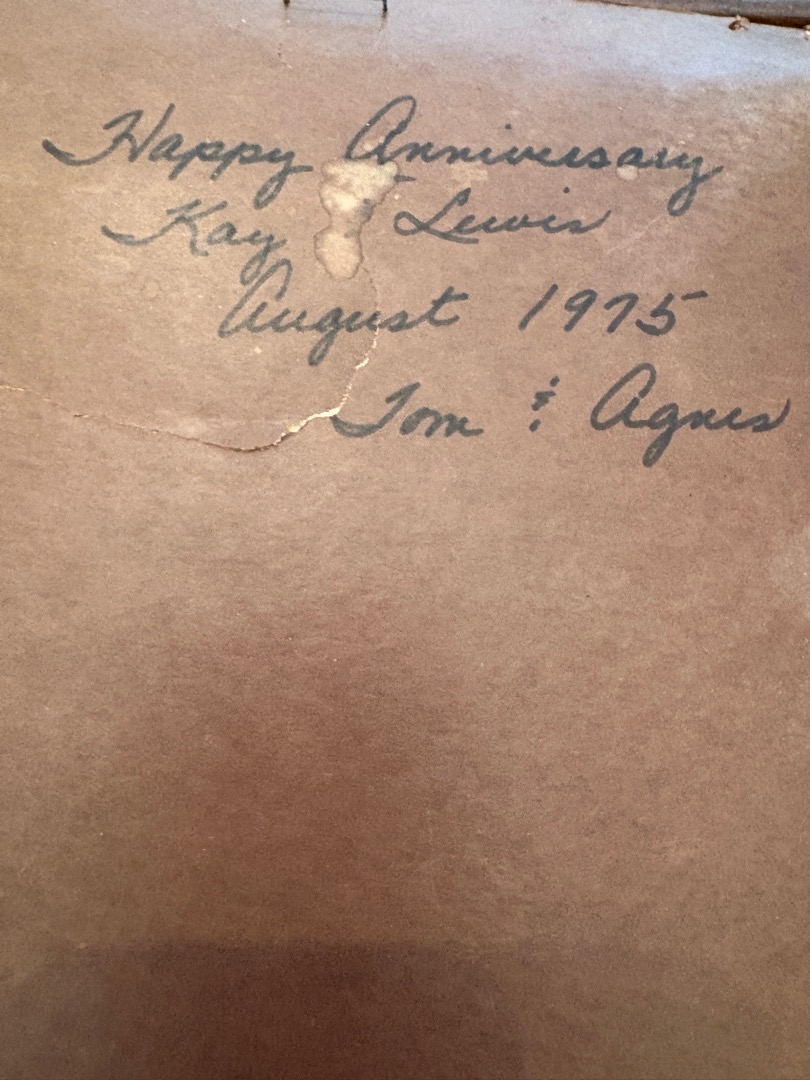 Happy Anniversary
Kay Lewis
August 1975
Tom & Agnes